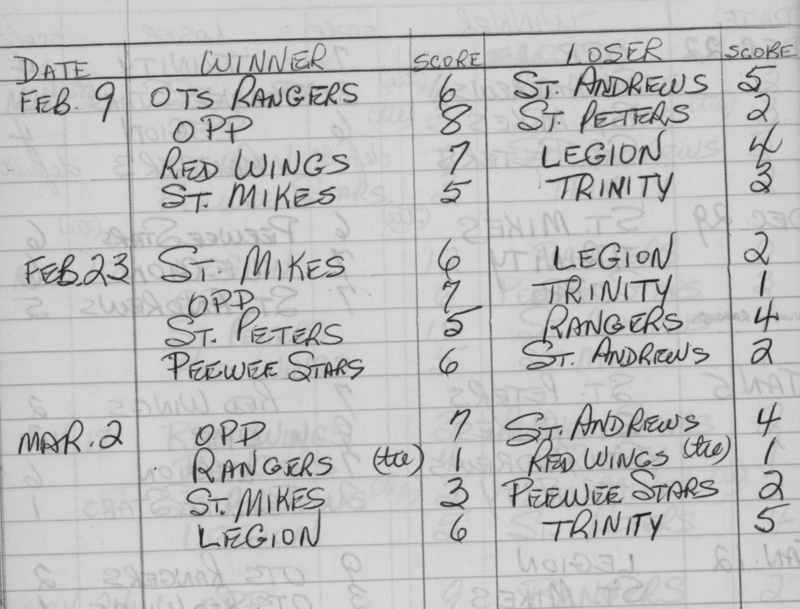 DATE WINNER SCORE LOSER SCORE
FEB. 9 OTS RANGERS 6 ST. ANDREWS 5
OPP 8 ST. PETERS 2
RED WINGS 7 LEGION 4
ST. MIKES 5 TRINITY 3
FEB. 23 ST. MIKES 6 LEGION 2
OPP 7 TRINITY 1
ST. PETERS 5 RANGERS 4
PEEWEE STARS 6 ST. ANDREWS 2
MAR. 2 OPP 7 ST. ANDREWS 4
RANGERS (tie) 1 RED WINGS (tie) 1
ST. MIKES 3 PEEWEE STARS 2
LEGION 6 TRINITY 5